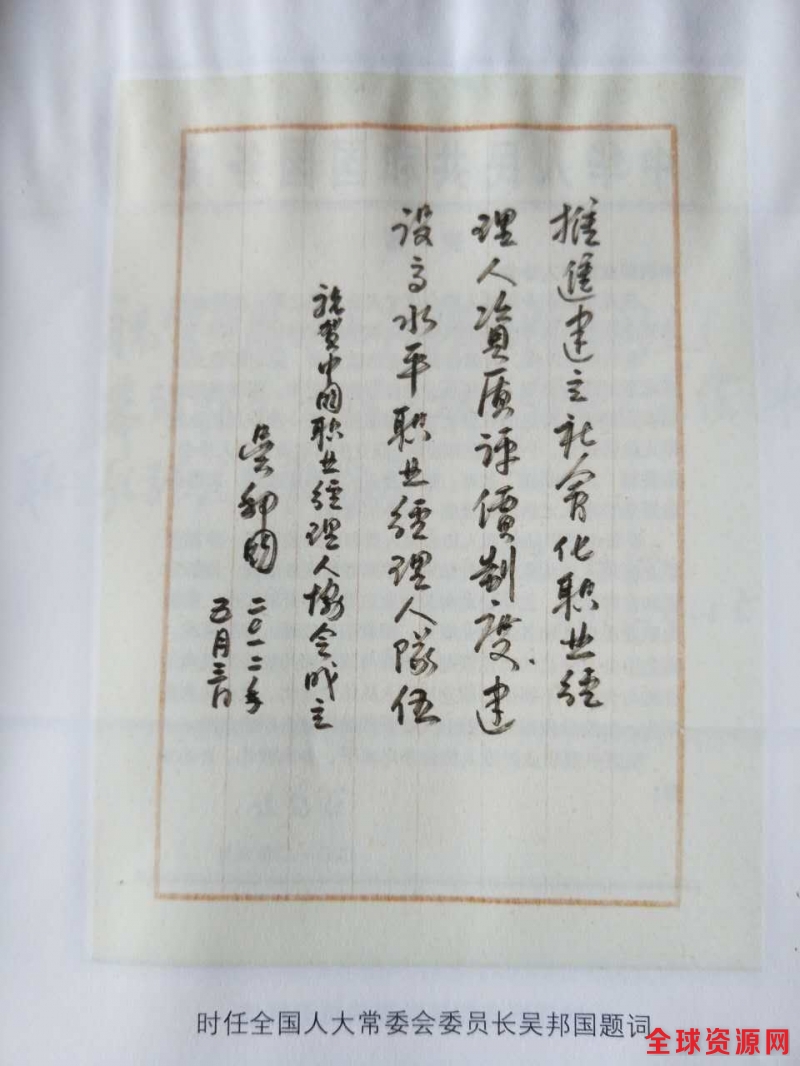 推進建立社會化职业經
理人資质评價制度、建
设高水平职业經理人隊伍
祝贺中国职业經理人協会成立
吴邦国
二〇一二年
五月三日
时任全国人大常委会委员长吴邦国题词
全球资源网